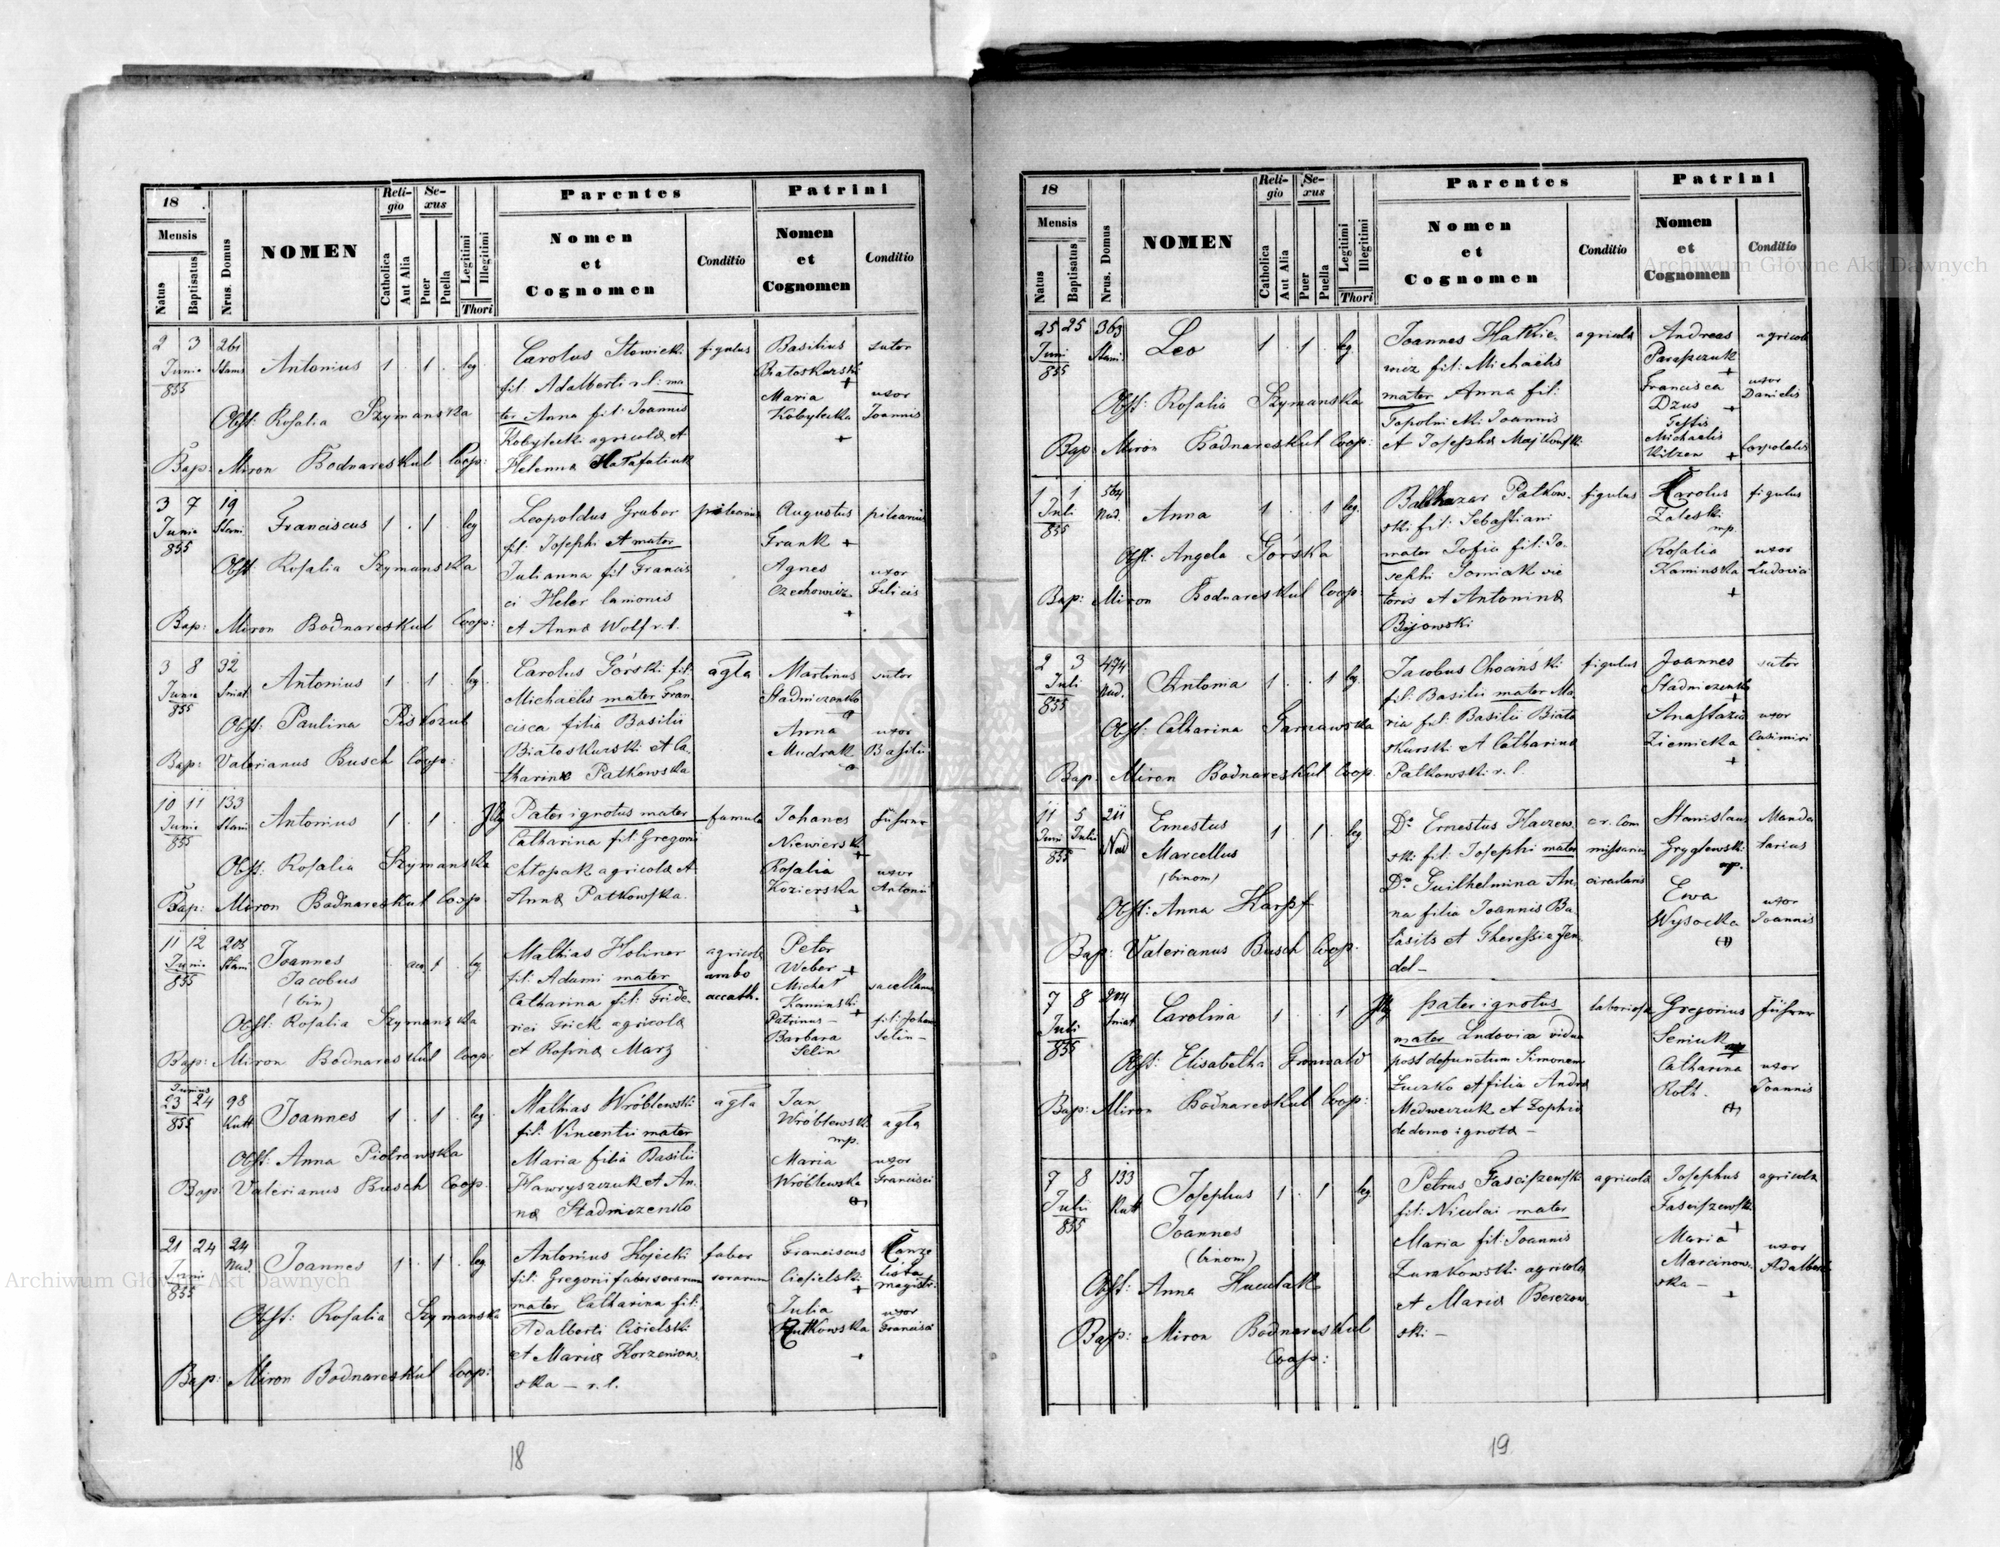 18
Mensis
Natus
Baptisatus
Nrus. Domus
NOMEN
Reli-
gio
Catholica
Aut Alia
Se-
xus
Puer
Puella
Legitimi
Illegitimi
Thori
Parentes
Nomen
et
Cognomen
Conditio
Patrini
Nomen
et
Cognomen
Conditio
2 3
Junio
855
Antonius 1 . 1 . leg
Obst: Rosalia Szymanska
Bap: Miron Bodnareskul Coop:
Carolus Słowicki
fil: Adalberti r.l: ma
ter Anna fil: Joannis
Kobylecki agricola et
Helenna
figulus
Basilius
Białoskurski
+
Maria
Kobylecka
+
sutor
uxor
Joannis
3 7 19
Junio
855
Franciscus 1 . 1 . leg
Obst: Rosalia Szymanska
Bap: Miron Bodnareskul Coop:
Leopoldus Gruber
fil: Josephi et mater
Julianna fil Francis
ci Heler lanionis
et Anna Wolf r.l.
Augustus
Frank +
Agnes
Czechowicz
+
pilearius
uxor
Felicis
3 8 32
Junio
855
Sniat
Antonius 1 . 1 . leg.
Obst: Paulina Piskozub
Bap: Valerianus Busch Coop:
Carolus Górski fil:
Michaelis mater Fran
cisca filia Basilii
Białoskurski et Ca
tharina Patkowska
agla
Martinus
Stadniczenko
Anna
Mudrak
sutor
uxor
Basilii
10 11 133
Junio
855
Stani
Antonius 1 . 1 . Illg
Obst: Rosalia Szymanska
Bap: Miron Bodnareskul Coop
Pater ignotus mater
Catharina fil: Gregorii
Chłopak agricola et
Anna Patkowska.
famula
Johanes
Niewierski
+
Rosalia
Kozierska
+
Führer
uxor
Antonii
11 12 203
Junio
855
Stani
Joannes
Jacobus
(bin)
Obst: Rosalia Szymanska
Bap: Miron Bodnareskul Coop:
Mathias Holiner
fil: Adami mater
Catharina fil: Fride-
rici Frick agricola
et Rosina Marz
agricola
ambo
accath.
Peter
Weber +
Michał
Kaminski
+
Patrinus -
Barbara
Selin
sacellanus
fil: Johan
Selin -
Junius
23 24 98
855
Kutt
Joannes 1 . 1 . leg
Obst: Anna Piotrowska
Bap: Valerianus Busch Coop.
Mathias Wróblewski
fil: Vincentii mater
Maria filia Basilii
Hawryszczuk et An.
na Stadniczenko
agla
Jan
Wróblewski
mp.
Maria
Wróblewska
(+)
agla
uxor
Francisci
21 24 24
Juni
855
Nad.
Joannes 1 . 1 . leg
Obst: Rosalia Szymanska
Bap: Miron Bodnareskul Coop:
Antonius Kojecki
fil: Gregorii faber serarum
mater Catharina fil:
Adalberti Cisielski
et Maria Korzeniow
ska - r.l.
faber
serarum
Franciscus
Ciesielski
+
Julia
Rutkowska
+
Kanze
lista
magistr:
uxor
Francisci
18
18
Mensis
Natus
Baptisatus
Nrus. Domus
NOMEN
Reli-
gio
Catholica
Aut Alia
Se-
xus
Puer
Puella
Legitimi
Illegitimi
Thori
Parentes
Nomen
et
Cognomen
Conditio
Patrini
Nomen
et
Cognomen
Conditio
25 25 363
Juni
855
Stani
Leo 1 . 1 . leg.
Obst: Rosalia Szymanska
Bap: Miron Bodnareskul Coop:
Joannes Hatkie-
wicz fil: Michaelis
mater Anna fil:
Topolnicki Joannis
et Josepha Majkowski
agricola
Andreas
Parapczuk
+
Francisca
Dzus +
Testis
Michaelis
Witzen +
agricola
uxor
Danielis
Corpolalis
1 1 564
Juli
855
Nad.
Anna 1 . . 1 leg.
Obst: Angela Górska
Bap: Miron Bodnareskul Coop:
Balthazar Patkow-
ski fil: Sebastiani
mater Zofia fil: Jo-
sephi Tomiak vie
toris et Antonina
Bijowski
figulus
Carolus
Zaleski
mp.
Rosalia
Kaminska
+
figulus
uxor
Ludovici
2 3 474
Juli
855
Nad.
Antonia 1 . . 1 leg.
Obst: Catharina Tarnawska
Bap. Miron Bodnareskul Coop.
Jacobus Chocinski
fil: Basilii mater Ma
ria fil: Basilii Biało
skurski et Catharina
Patkowski r.l.
figulus
Joannes
Stadniczenko
+
Anastazia
Ziemicka
+
sutor
uxor
Casimiri
11 5 211
Juni Juli
855
Nad
Ernestus
Marcellus
(binom)
1 . 1 . leg
Obst: Anna Karpf
Bap: Valerianus Busch Coop.
Ds Ernestus Haczew-
ski fil: Josephi mater
Da Guilhelmina An-
na filia Joannis Ba
lasits et Theresia Jen
del -
cr. com
missarius
circularis
Stanislaus
Gryglewski
mp.
Ewa
Wysocka
(+)
Manda
tarius
uxor
Joannis
7 8 204
Juli
855
Sniat
Carolina 1 . . 1 Illg
Obst: Elisabetha Grunwald
Bap: Miron Bodnareskul Coop:
pater ignotus
mater Ludovica vidua
post defunctum Simonem
Łuczko et filia Andre
Medweczuk et Zophia
de domo ignota -
Gregorius
Seniuk
mp
Catharina
Roth.
(+)
Führer
uxor
Joannis
7 8 133
Juli
855
Kutt
Josephus
Joannes
(binom)
1 . 1 . leg
Obst: Anna Huculak
Bap: Miron Bodnareskul
Coop:
Petrus Fasciszewski
fil: Nicolai mater
Maria fil: Joannis
Zurakowski agricola
et Maria Berezow
ski -
agricola
Josephus
Fasciszewski
+
Maria
Marcinow-
ska -
+
agricola
uxor
Adalberti
19
Archiwum Główne Akt Dawnych
Archiwum Główne Akt Dawnych